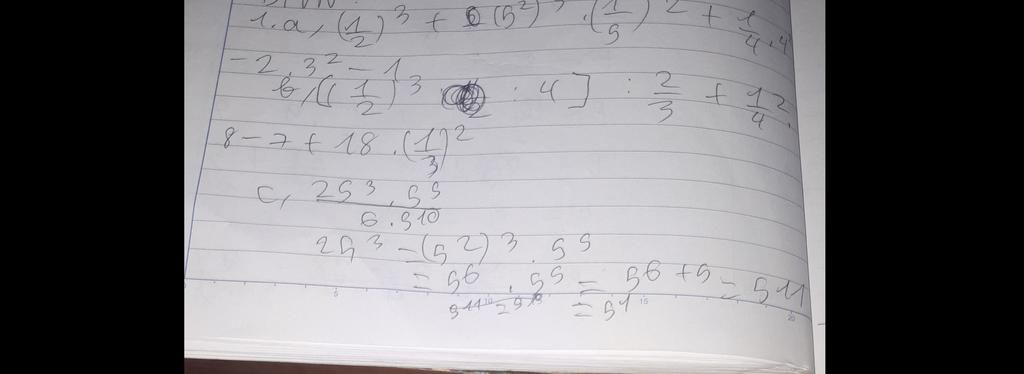 1.a, (1/2)^3 + (5^2)^3 . (1/5)^2 + 1/4 . 4
- 2 . 3^2 - 1
b, [(1/2)^3 : 4] : 2/3 + 12/4 .
8 - 7 + 18 . (1/3)^2
c, 25^3 . 5^5 / 6 . 5^10
25^3 = (5^2)^3 . 5^5
= 5^6 . 5^5 = 5^6+5 = 5^11
= 5^1
5
15
20